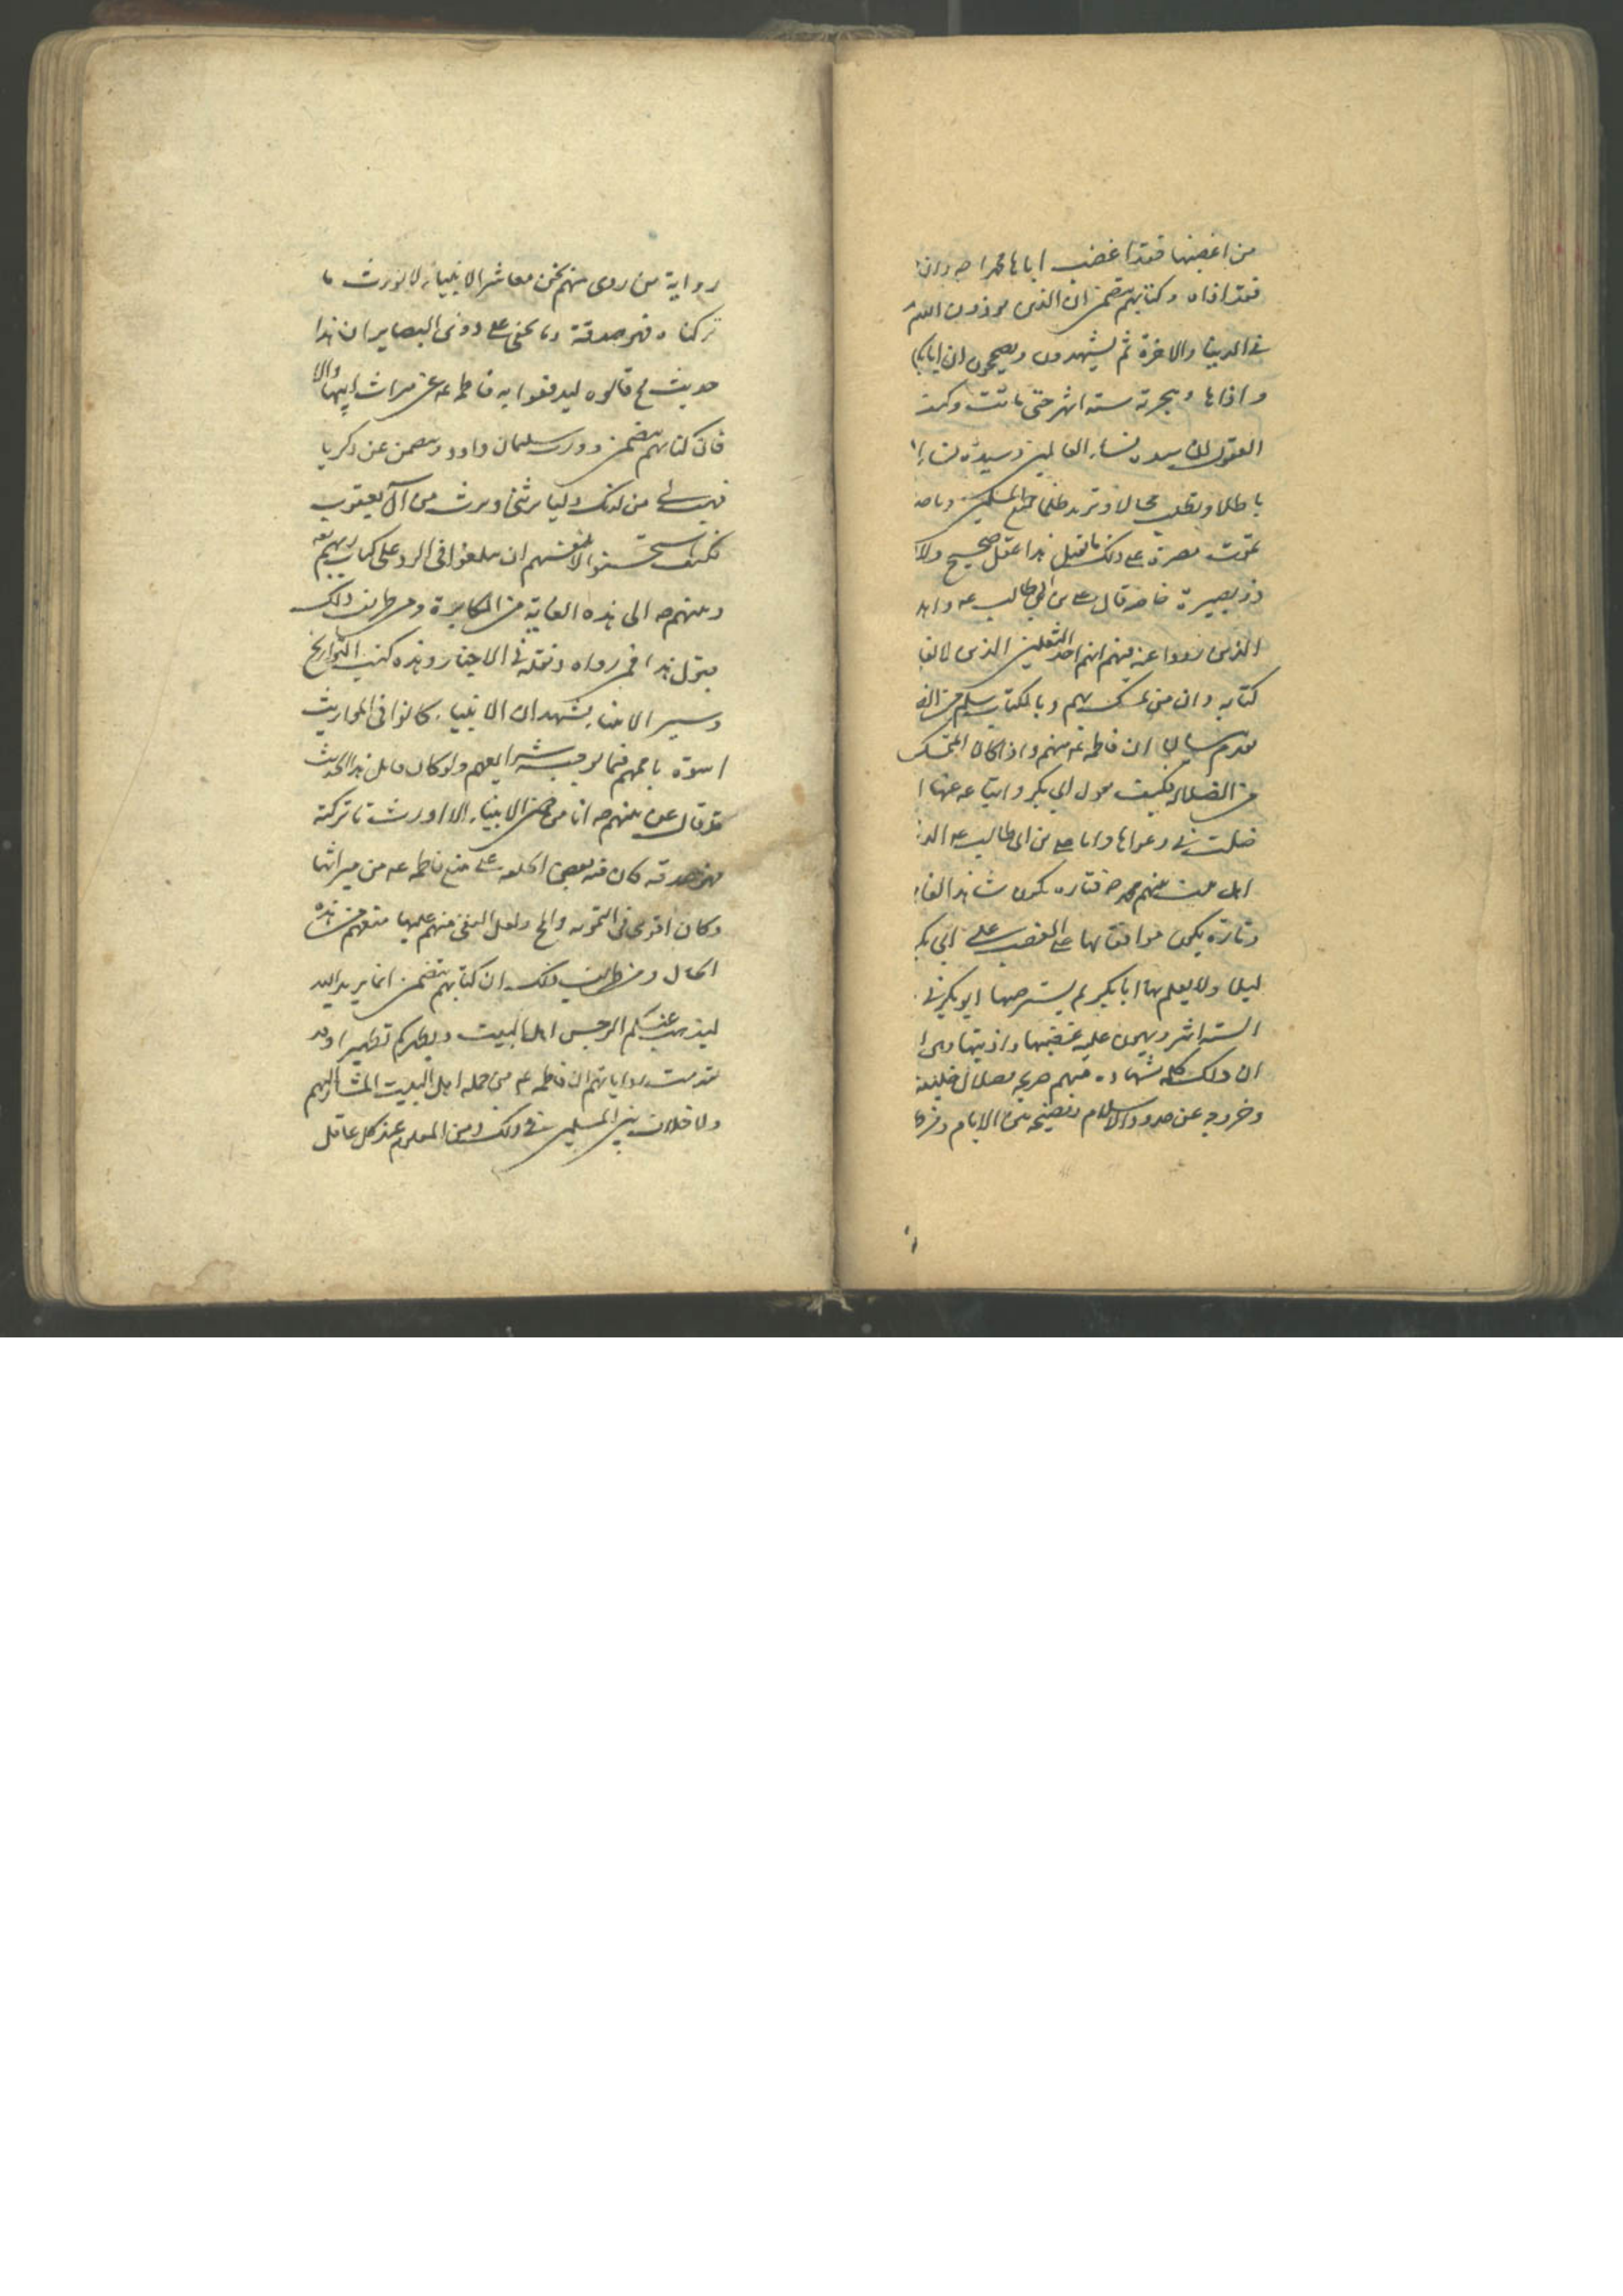 من اغضبها فقد اغضب اباها محمدا ص وان
فقد اذاه وكتابهم يتضمن ان الذين يوذون الله
في الدنيا والاخرة ثم يشهدون ويصححون ان ابا بكر
واذاها وهجرته ستة اشهر حتى ماتت وكيف
العقول ان سيدة نساء العالمين وسيدة نساء ا
باطلا وتطلب محالا وتريد ظلم جميع المسلمين
تموت مصرة على ذلك ما يقبل هذا عقل صحيح ولا
ذو بصيرة خاصة قال علي بن ابي طالب ع
الذين رووا عن نبيهم انهم احد الثقلين الذين
كتابه وان من تمسك بهم وبالكتاب سلم من
تقدم بيان ان فاطمة ع منهم واذا كان المتمسك
من الضلالة فكيف يقول ابي بكر واتباعه عنها ا
ضلت في دعواها واما علي بن ابي طالب ع
اهل بيت نبيهم محمد ص فتارة يكون شاهدا لفا
وتارة يكون موافقا لها على الغضب على ابي بكر
ليلا ولا يعلم بها ابا بكر ولم يسترضها ابو بكر في
الستة اشهر ويهون عليه غضبها واذيتها
ان ذلك كله شهادة منهم صريحة بضلال خليفة
وخروجه عن حدود الاسلام وفضيحة الايام
رواية من روى منهم نحن معاشر الانبياء لا نورث ما
تركناه فهو صدقة وما يخفى على ذوي البصاير ان هذا
حديث قالوه ليدفعوا به فاطمة ع عن ميراث ابيها والا
فان كتابهم يتضمن وورث سليمان داود ويتضمن عن زكريا
فهب لي من لدنك وليا يرثني ويرث من آل يعقوب
فكيف استحسنوا لانفسهم ان يبلغوا في الرد على كتاب ربهم
ونبيهم ص الى هذه الغاية من المكابرة ومن طرايف ذلك
يقول هذا في رواه ونقله في الاخبار وهذه كتب التواريخ
وسير الانبياء يشهد ان الانبياء كانوا في المواريث
اسوة باممهم فيما يوجبه شرايعهم ولو كان قايل هذا الحديث
قد قال عن نبيهم ص انا من بعض الانبياء الا اورث ما تركته
فهو صدقة كان فيه بعض الحيلة على منع فاطمة ع من ميراثها
وكان اقرى في التمويه والمح ولعل البغي منهم عليها منعهم من هذه
الحال ومن طرايف ذلك ان كتابهم يتضمن انما يريد الله
ليذهب عنكم الرجس اهل البيت ويطهركم تطهيرا وقد
تقدمت رواياتهم ان فاطمة ع من جملة اهل البيت المشار اليهم
ولا خلاف بين المسلمين في ذلك ومن المعلوم عند كل عاقل